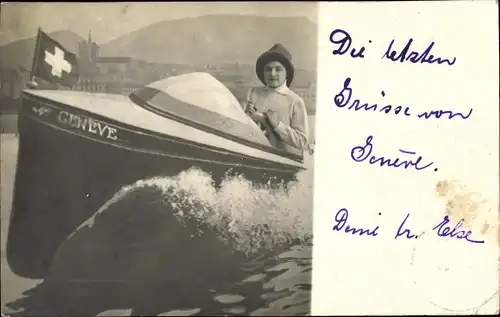 GENÈVE
Die letzten
Grüsse von
Genève.
Deine tr. Else